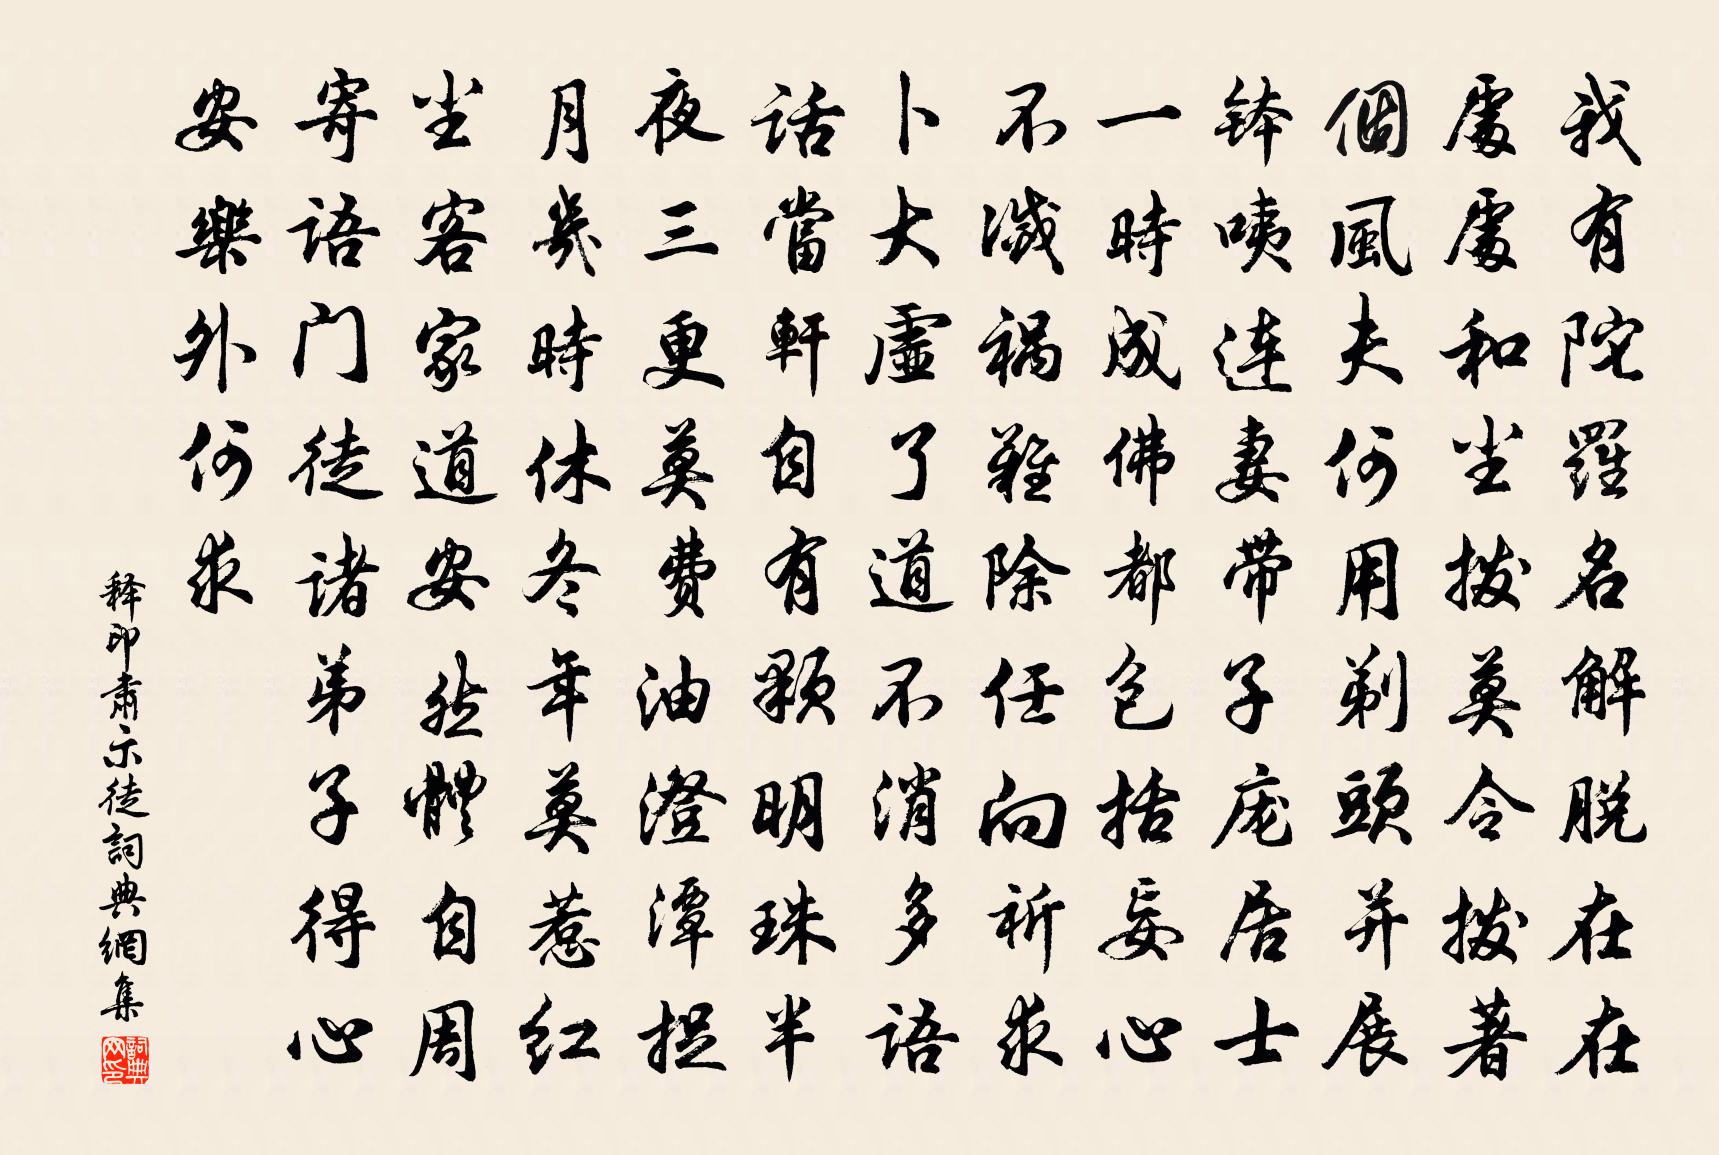 我有陀羅名解脫在在
處處和坐拨莫令拨著
個風夫何用剃頭并展
钵咦连妻带子庞居士
一時成佛都包括妄心
不滅祸難除任向祈求
卜大虛了道不消多語
話當軒自有顆明珠半
夜三更莫費油澄潭捉
月幾時休冬年莫惹红
坐客家道安然體自周
寄語门徒諸弟子得心
安樂外何求
释印肃示徒詞典網集
詞典网印